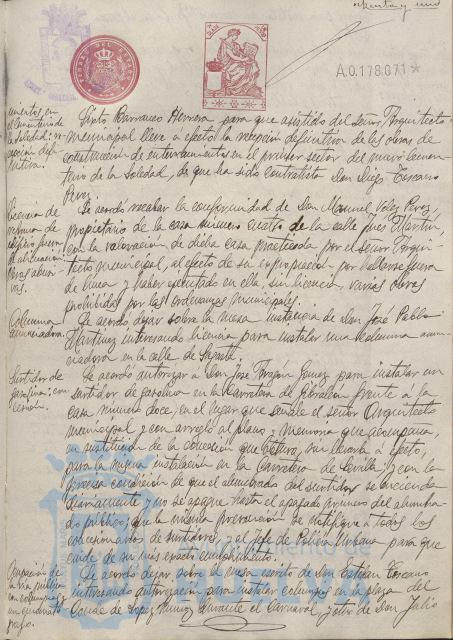 A.0.178.071*
mientos en
el Cementerio de
la Soledad: re-
cepción defi-
nitiva.
Sixto Barranco Herrera para que asistido del señor Arquitecto
municipal lleve a efecto la recepción definitiva de las obras de
construcción de enterramientos en el primer sector del nuevo Cemen-
terio de la Soledad, de que ha sido contratista Don Diego Toscano
Pérez.
Se acordó recabar la conformidad de Don Manuel Pérez,
propietario de la casa número cuatro de la calle
con la valoración de dicha casa practicada por el señor Arqui-
tecto municipal, al efecto de su expropiación por hallarse fuera
de línea y haber ejecutado en ella, sin licencia, varias obras
prohibidas por las ordenanzas municipales.
Columna
anunciadora.
Se acordó dejar sobre la mesa instancia de Don José Pablo
Martínez interesando licencia para instalar una columna anun-
ciadora en la calle de
Surtidor de
gasolina: con-
cesión.
Se acordó autorizar a Don José Gómez para instalar un
surtidor de gasolina en la Carretera de Gibraleón frente a la
casa número doce, en el lugar que señale el señor Arquitecto
municipal y con arreglo al plano y memoria que acompaña,
en sustitución de la concesión que obtuvo, sin llevarla a efecto,
para la misma instalación en la Carretera de Sevilla; y con la
precisa condición de que el alumbrado del surtidor se encienda
diariamente y no se apague hasta el apagado primero del alumbra-
do público; que la misma prevención se notifique a todos los
concesionarios de surtidores, y al Jefe de Policía Urbana para que
cuide de su más exacto cumplimiento.
Ocupación de
la vía pública
con columpios y
un
Se acordó dejar sobre la mesa escrito de Don Esteban Toscano
interesando autorización para instalar columpios en la plaza del
Conde de López Muñoz durante el Carnaval, y otro de Don Julio